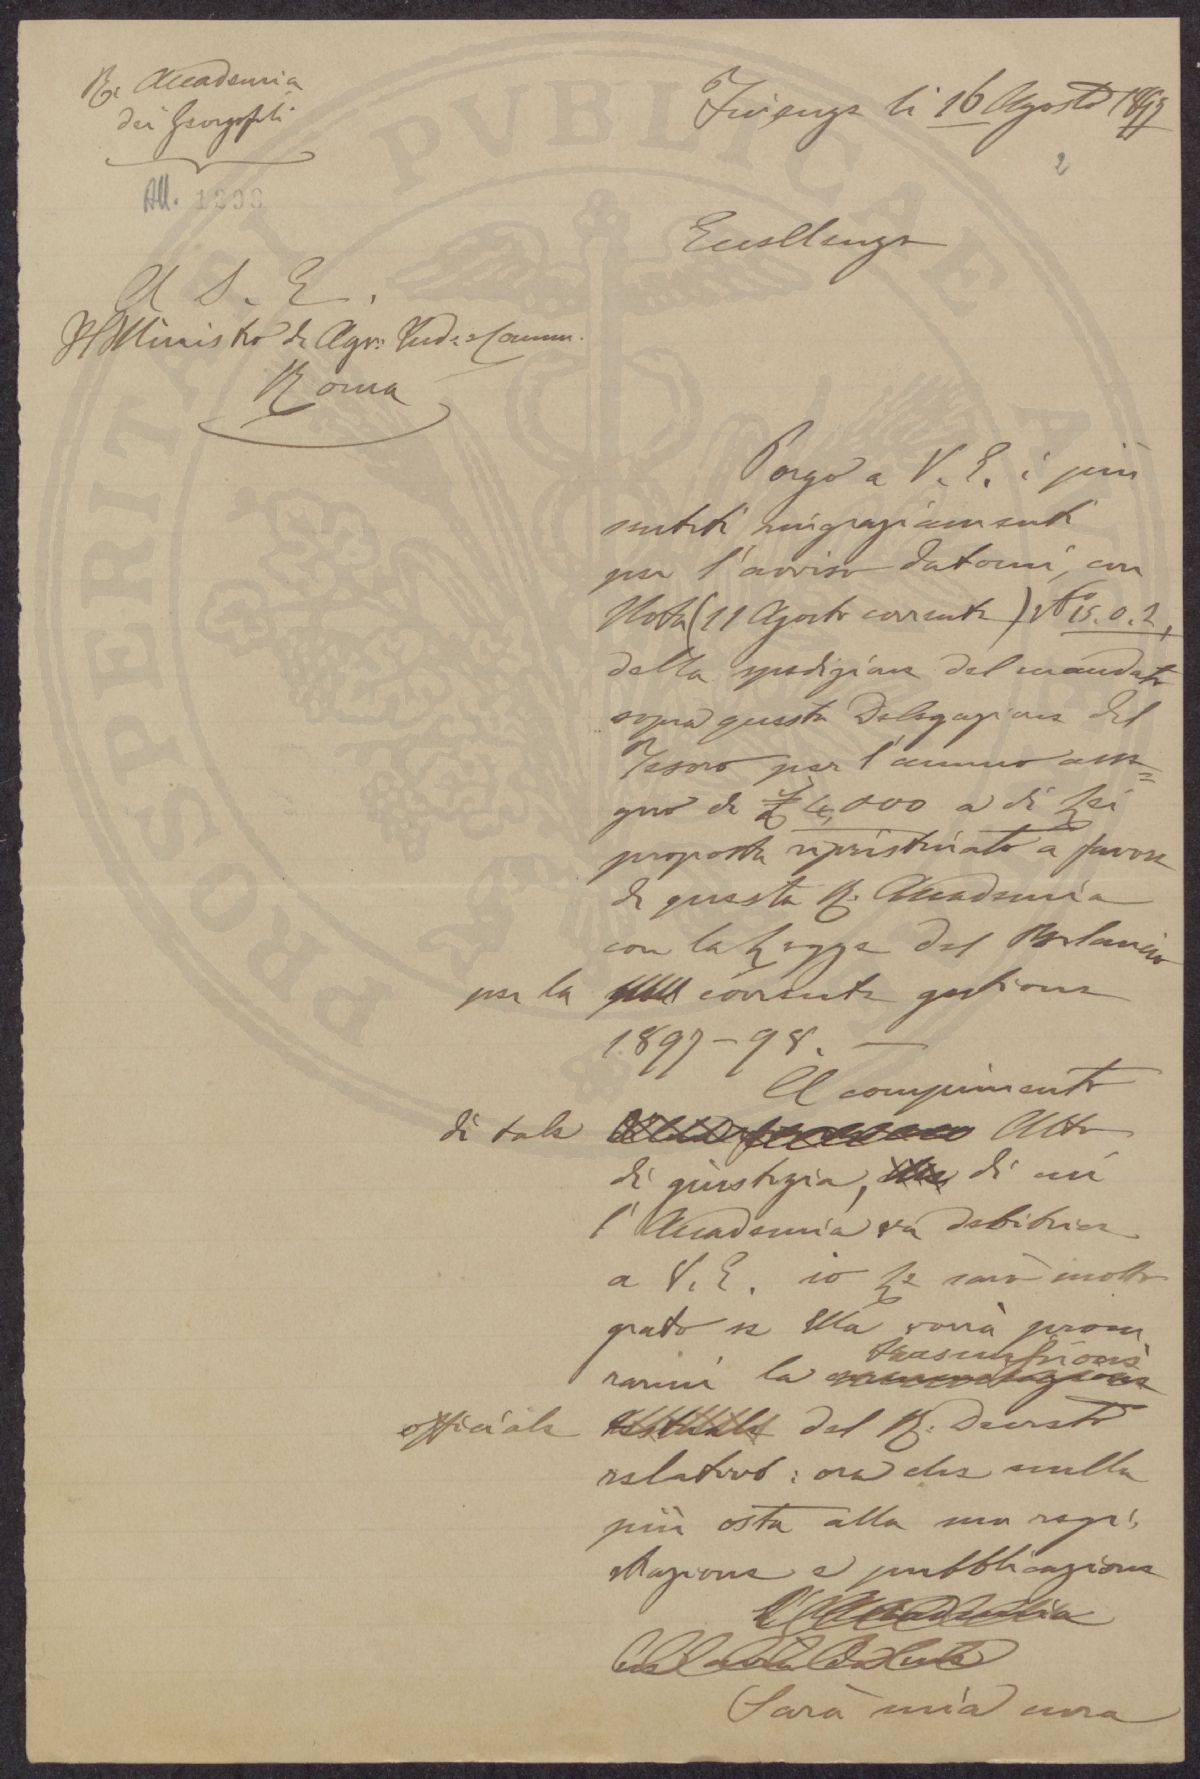 R. Accademia
dei Georgofili
All. 1298
Firenze li 16 Agosto 1897
2
Eccellenza
A S. E.
Il Ministro di Agr. Ind. e Comm.
Roma
Porgo a V. E. i più
sentiti ringraziamenti
per l'avviso datomi, con
Nota (11 Agosto corrente) N° 15.0.2,
della spedizione del mandato
sopra questa Delegazione del
Tesoro per l'annuo asse=
gno di £ 4,000 a di Lei
proposta ripristinato a favore
di questa R. Accademia
con la Legge del Bilancio
per la corrente gestione
1897-98. —
A compimento
di tale Atto
di giustizia, di cui
l'Accademia va debitrice
a V. E. io Le sarò molto
grato se Ella vorrà procu
rarmi la trascrizione
officiale testuale del R. Decreto
relativo: ora che nulla
più osta alla sua regi=
strazione e pubblicazione
L'Accademia
Sarà mia cura
PVBLICAE
PROSPERITATI